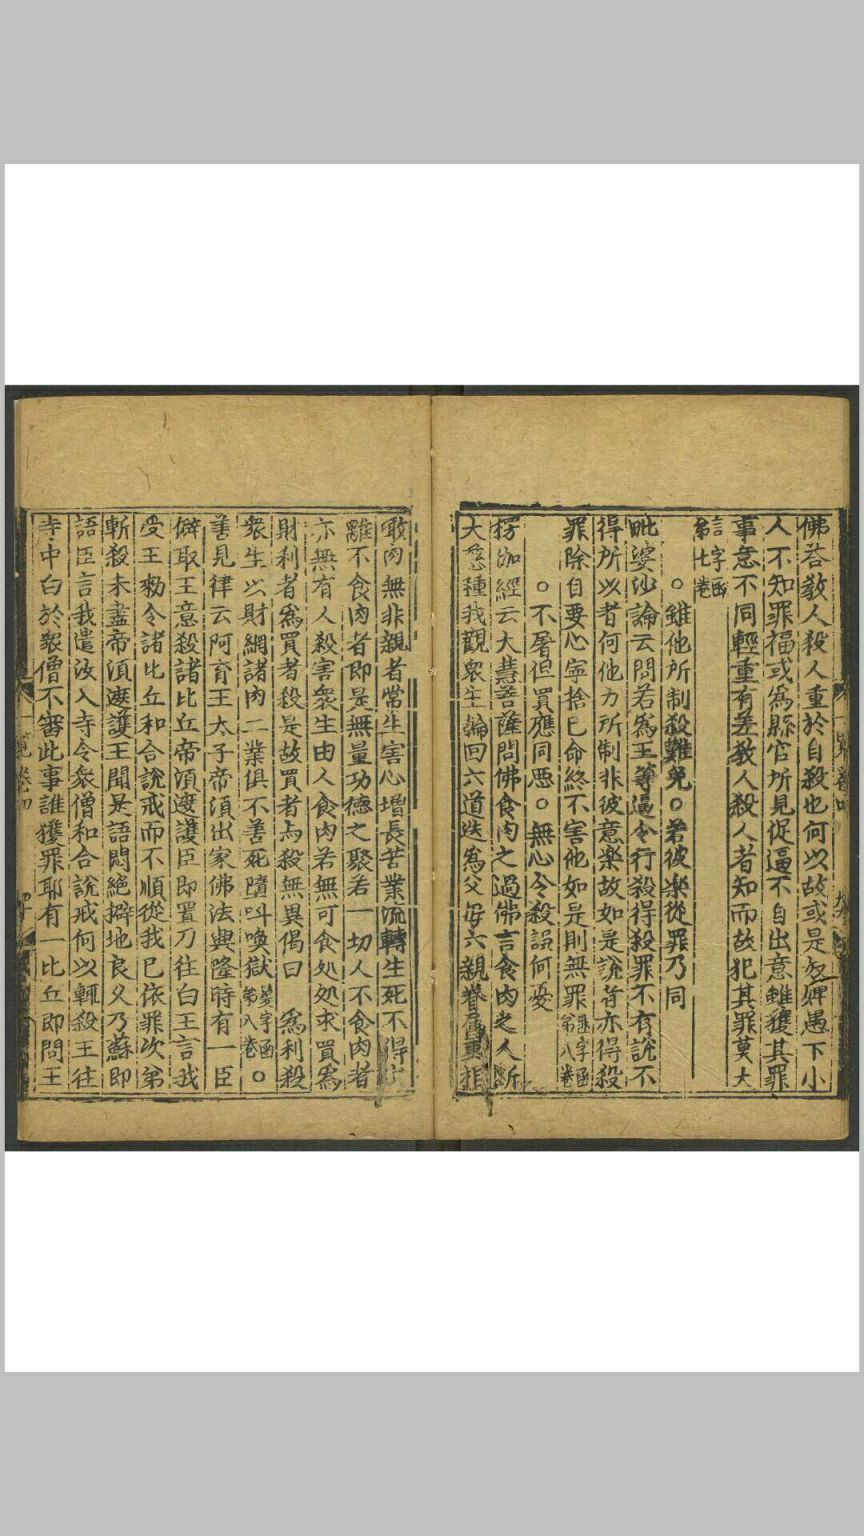 佛荅敎人殺人重於自殺也何以故或是奴婢愚下小
人不知罪福或爲縣官所見促逼不自出意雖獲其罪
事意不同輕重有差敎人殺人者知而故犯其罪莫大
言字函
第七卷
○雖他所制殺難免○若彼樂從罪乃同
毗婆沙論云問若爲王等逼令行殺得殺罪不有說不
得所以者何他力所制非彼意樂故如是說者亦得殺
罪除自要心寧捨己命終不害他如是則無罪
字函
第八卷
○不屠但買應同惡○無心令殺誤何憂
楞伽經云大慧菩薩問佛食肉之過佛言食肉之人斷
大慈種我觀衆生輪回六道迭爲父母六親眷屬
敢肉無非親者常生害心增長苦業流轉生死不得
離不食肉者即是無量功德之聚若一切人不食肉者
亦無有人殺害衆生由人食肉若無可食処処求買爲
財利者爲買者殺是故買者与殺無異偈曰 爲利殺
衆生以財網諸肉二業俱不善死墮叫喚獄
字函
第八卷
○
善見律云阿育王太子帝須出家佛法興隆時有一臣
僻取王意殺諸比丘帝須遮護臣即置刀往白王言我
受王勑令諸比丘和合說戒而不順從我已依罪次第
斬殺未盡帝須遮護王聞是語悶絕擗地良久乃蘇即
語臣言我遣汝入寺令衆僧和合說戒何以輒殺王往
寺中白於衆僧不審此事誰獲罪耶有一比丘即問王
一覽 卷四